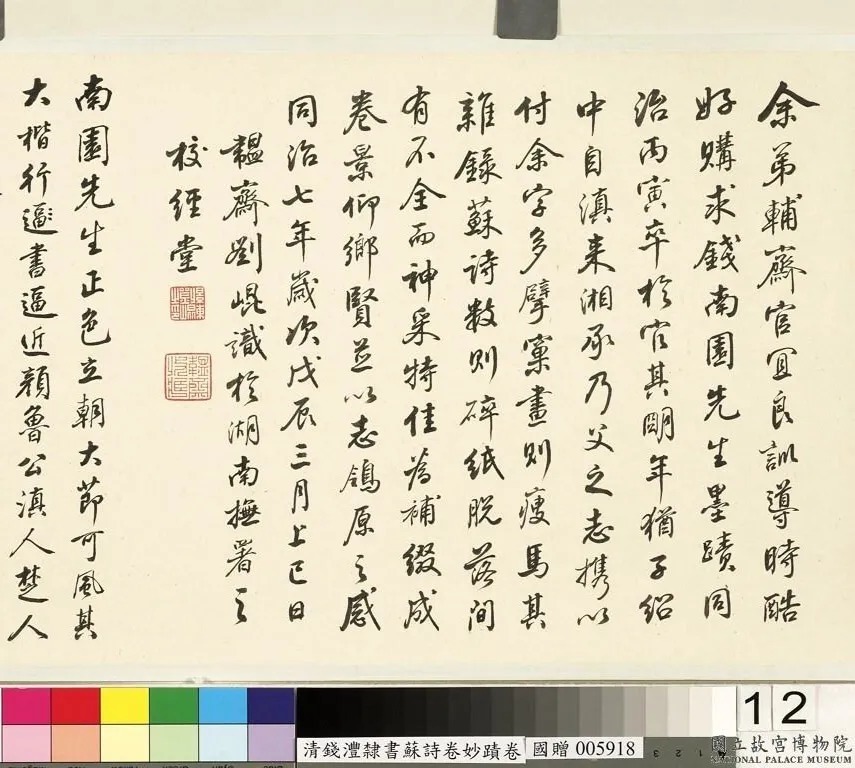 余弟輔齋官宜良訓導時酷
好購求錢南園先生墨蹟同
治丙寅卒於官其明年猶子紹
中自滇来湘承乃父之志携以
付余字多擘窠畫則瘦馬其
雜錄蘇詩数則碎紙脫落間
有不全而神采特佳為補綴成
卷景仰鄉賢並以志鴒原之感
同治七年歲次戊辰三月上巳日
韞齋劉崐識於湖南撫署之
校經堂
南園先生正色立朝大節可風其
大楷行逼書逼近顏魯公滇人楚人
12
清錢灃隸書蘇詩卷妙蹟卷 國贈 005918
國立故宮博物院
NATIONAL PALACE MUSEUM